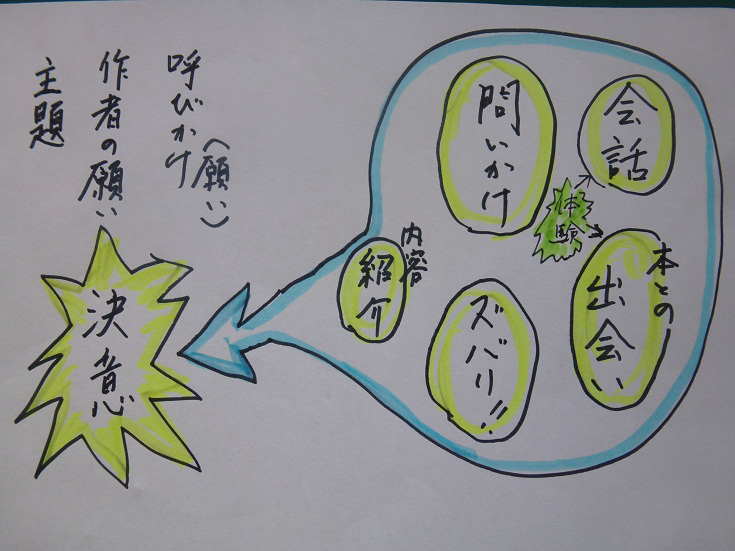 会話
体験
本との
出会い
問いかけ
ズバリ!!
内容
紹介
呼びかけ
(願い)
作者の願い
主題
決意